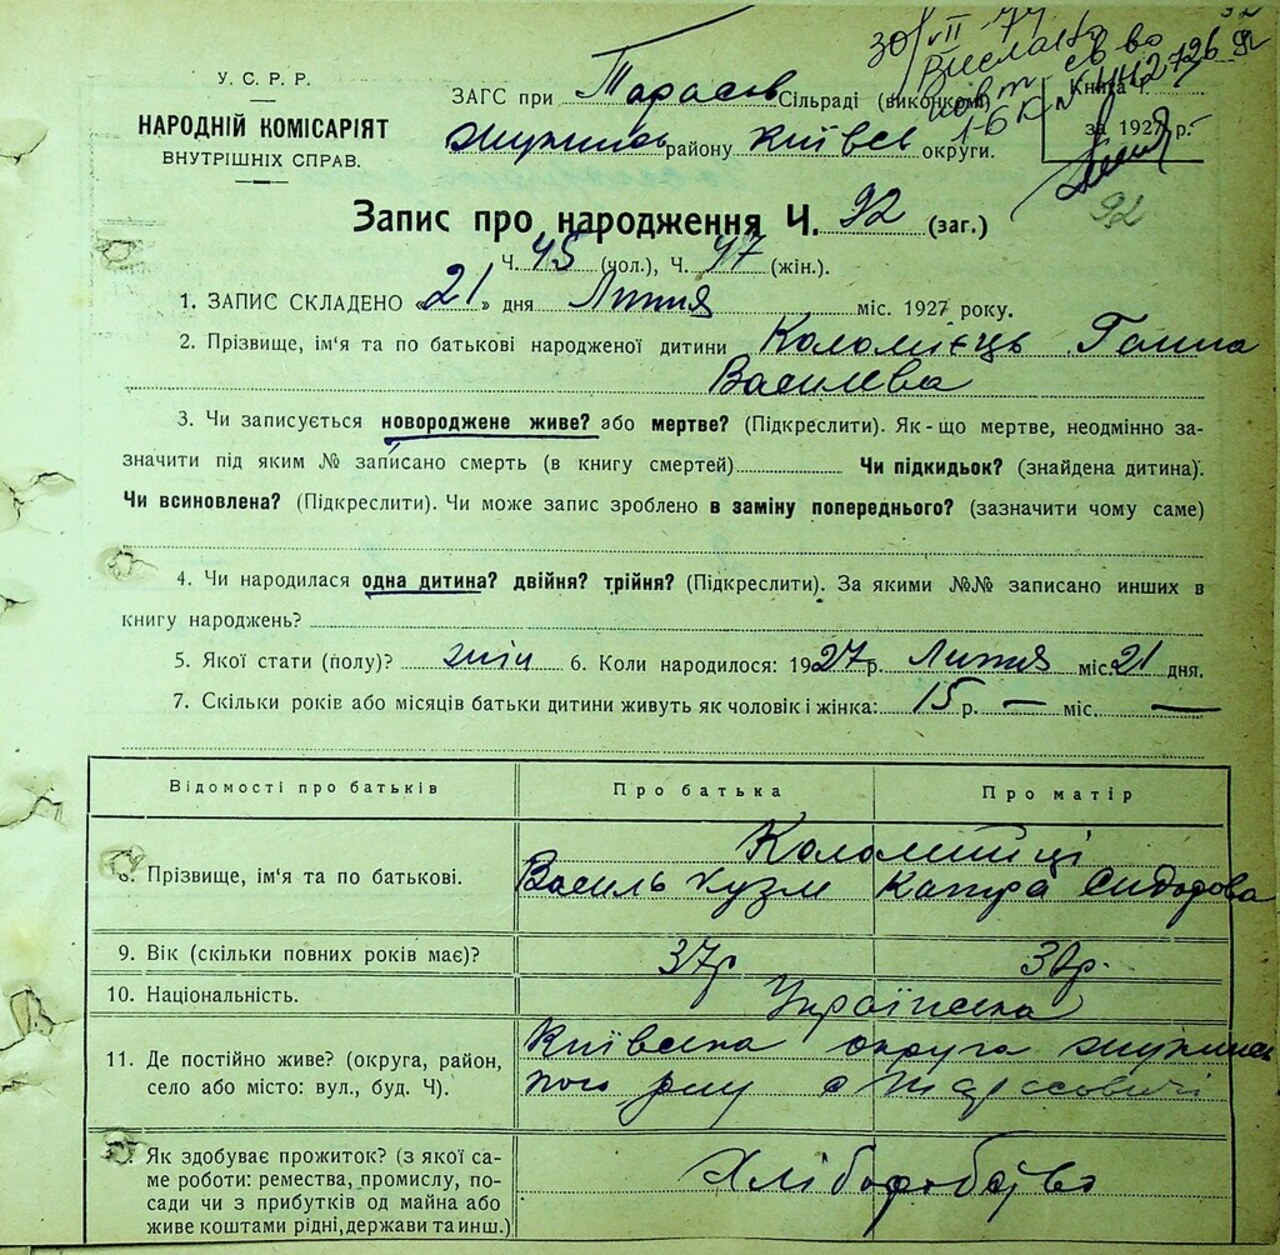 30/VII 77
Вислано
повт. св во
1-БК № 442726
92
У. С. Р. Р.
НАРОДНІЙ КОМІСАРІЯТ
ВНУТРІШНІХ СПРАВ.
ЗАГС при Тарасов Сільраді (виконкомі)
района Київськ округи.
Книга Ч.
за 1927 р.
Запис про народження Ч. 92 (заг.)
92
Ч. 45 (чол.), Ч. 47 (жін.).
1. ЗАПИС СКЛАДЕНО «21» дня Лютня міс. 1927 року.
2. Прізвище, ім'я та по батькові народженої дитини Коломієць Ганна
Василева
3. Чи записується новороджене живе? або мертве? (Підкреслити). Як-що мертве, неодмінно за-
значити під яким № записано смерть (в книгу смертей) Чи підкидьок? (знайдена дитина).
Чи всиновлена? (Підкреслити). Чи може запис зроблено в заміну попереднього? (зазначити чому саме)
4. Чи народилася одна дитина? двійня? трійня? (Підкреслити). За якими №№ записано инших в
книгу народжень?
5. Якої стати (полу)? жін 6. Коли народилося: 1927 р. Лютня міс. 21 дня.
7. Скільки років або місяців батьки дитини живуть як чоловік і жінка: 15 р. — міс. —
Відомості про батьків Про батька Про матір
Коломийці
8. Прізвище, ім'я та по батькові. Василь Кузм Катра Сидорова
9. Вік (скільки повних років має)? 37р 30р.
10. Національність. Українська
11. Де постійно живе? (округа, район, Київська округа
село або місто: вул., буд. Ч). с Тарасовичі
Як здобуває прожиток? (з якої са-
ме роботи: ремества, промислу, по- Хліборобство
сади чи з прибутків од майна або
живе коштами рідні, держави та инш.)